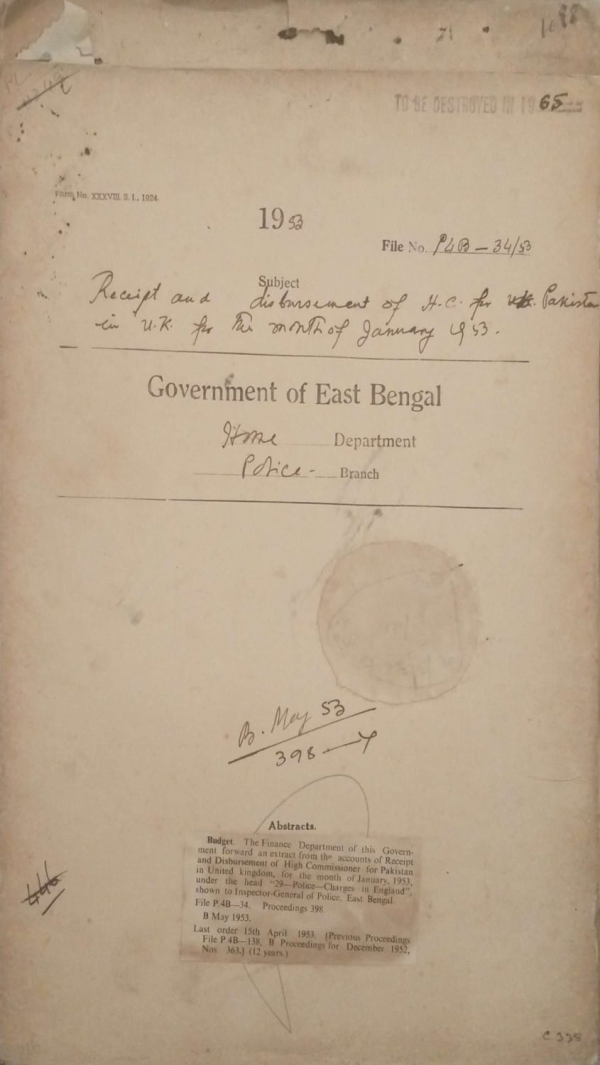 TO BE DESTROYED IN 19 65
Form No. XXXVIII. S. 1., 1924.
1953
File No. P4B — 34/53
Subject
Receipt and disbursement of H.C. for Pakistan
in U.K. for the month of January 1953.
Government of East Bengal
Home Department
Police - Branch
B. May 53
398
Abstracts.
Budget. The Finance Department of this Govern-
ment forward an extract from the accounts of Receipt
and Disbursement of High Commissioner for Pakistan
in United kingdom, for the month of January, 1953,
under the head "29—Police—Charges in England",
shown to Inspector-General of Police, East Bengal
File P.4B—34. Proceedings 398.
B May 1953.
Last order 15th April 1953. [Previous Proceedings
File P.4B—138, B Proceedings for December 1952,
Nos. 363.] (12 years.)
C 338